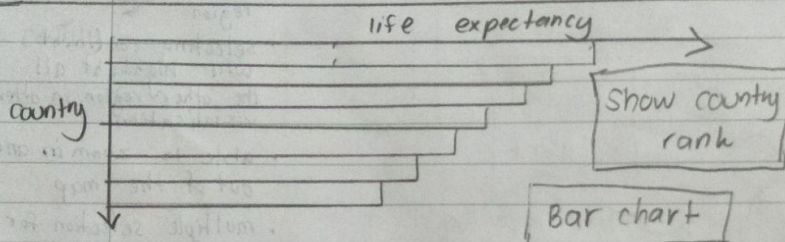 life expectancy
Country
Show country
rank
Bar chart